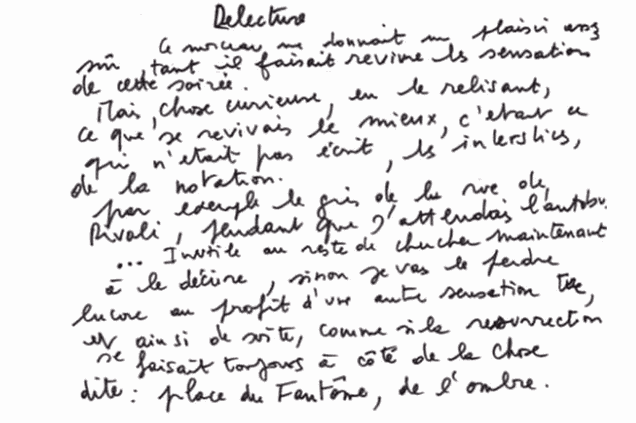 Relecture
Ce morceau me donnait un plaisir assez
sûr, tant il faisait revivre les sensations
de cette soirée.
Mais, chose curieuse, en le relisant,
ce que je revivais le mieux, c'était ce
qui n'était pas écrit, les interstices,
de la notation.
par exemple le gris de la rue de
Rivoli, pendant que j'attendais l'autobus
... Inutile au reste de chercher maintenant
à le décrire, sinon je vais le perdre
encore au profit d'une autre sensation tue,
et ainsi de suite, comme si la résurrection
se faisait toujours à côté de la chose
dite : place du Fantôme, de l'ombre.